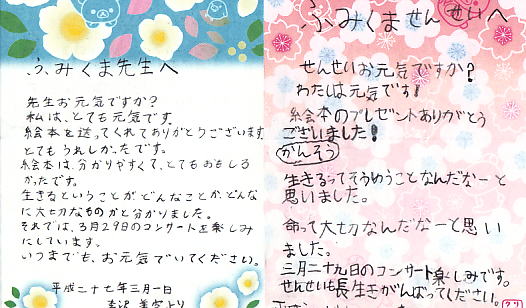 ふみくま先生へ
先生お元気ですか?
私は、とても元気です。
絵本を送ってくれてありがとうございます
とてもうれしかたです。
絵本は、分かりやすくて、とてもおもしろ
かったです。
生きるということが、どんなことか、どんな
に大切なものかと分かりました。
それでは、3月29日のコンサートを楽しみ
にしています。
いつまでも、お元気でいてください。
平成二十七年三月一日
ふみくませんせいへ
せんせいお元気ですか?
わたしは元気です!
絵本のプレゼントありがとう
ございました!
がんそう
生きるってそうゆうことなんだなーと
思いました。
命って大切なんだなーと思い
ました。
三月二十九日のコンサート楽しみです。
せんせいも長生きがんばってください。